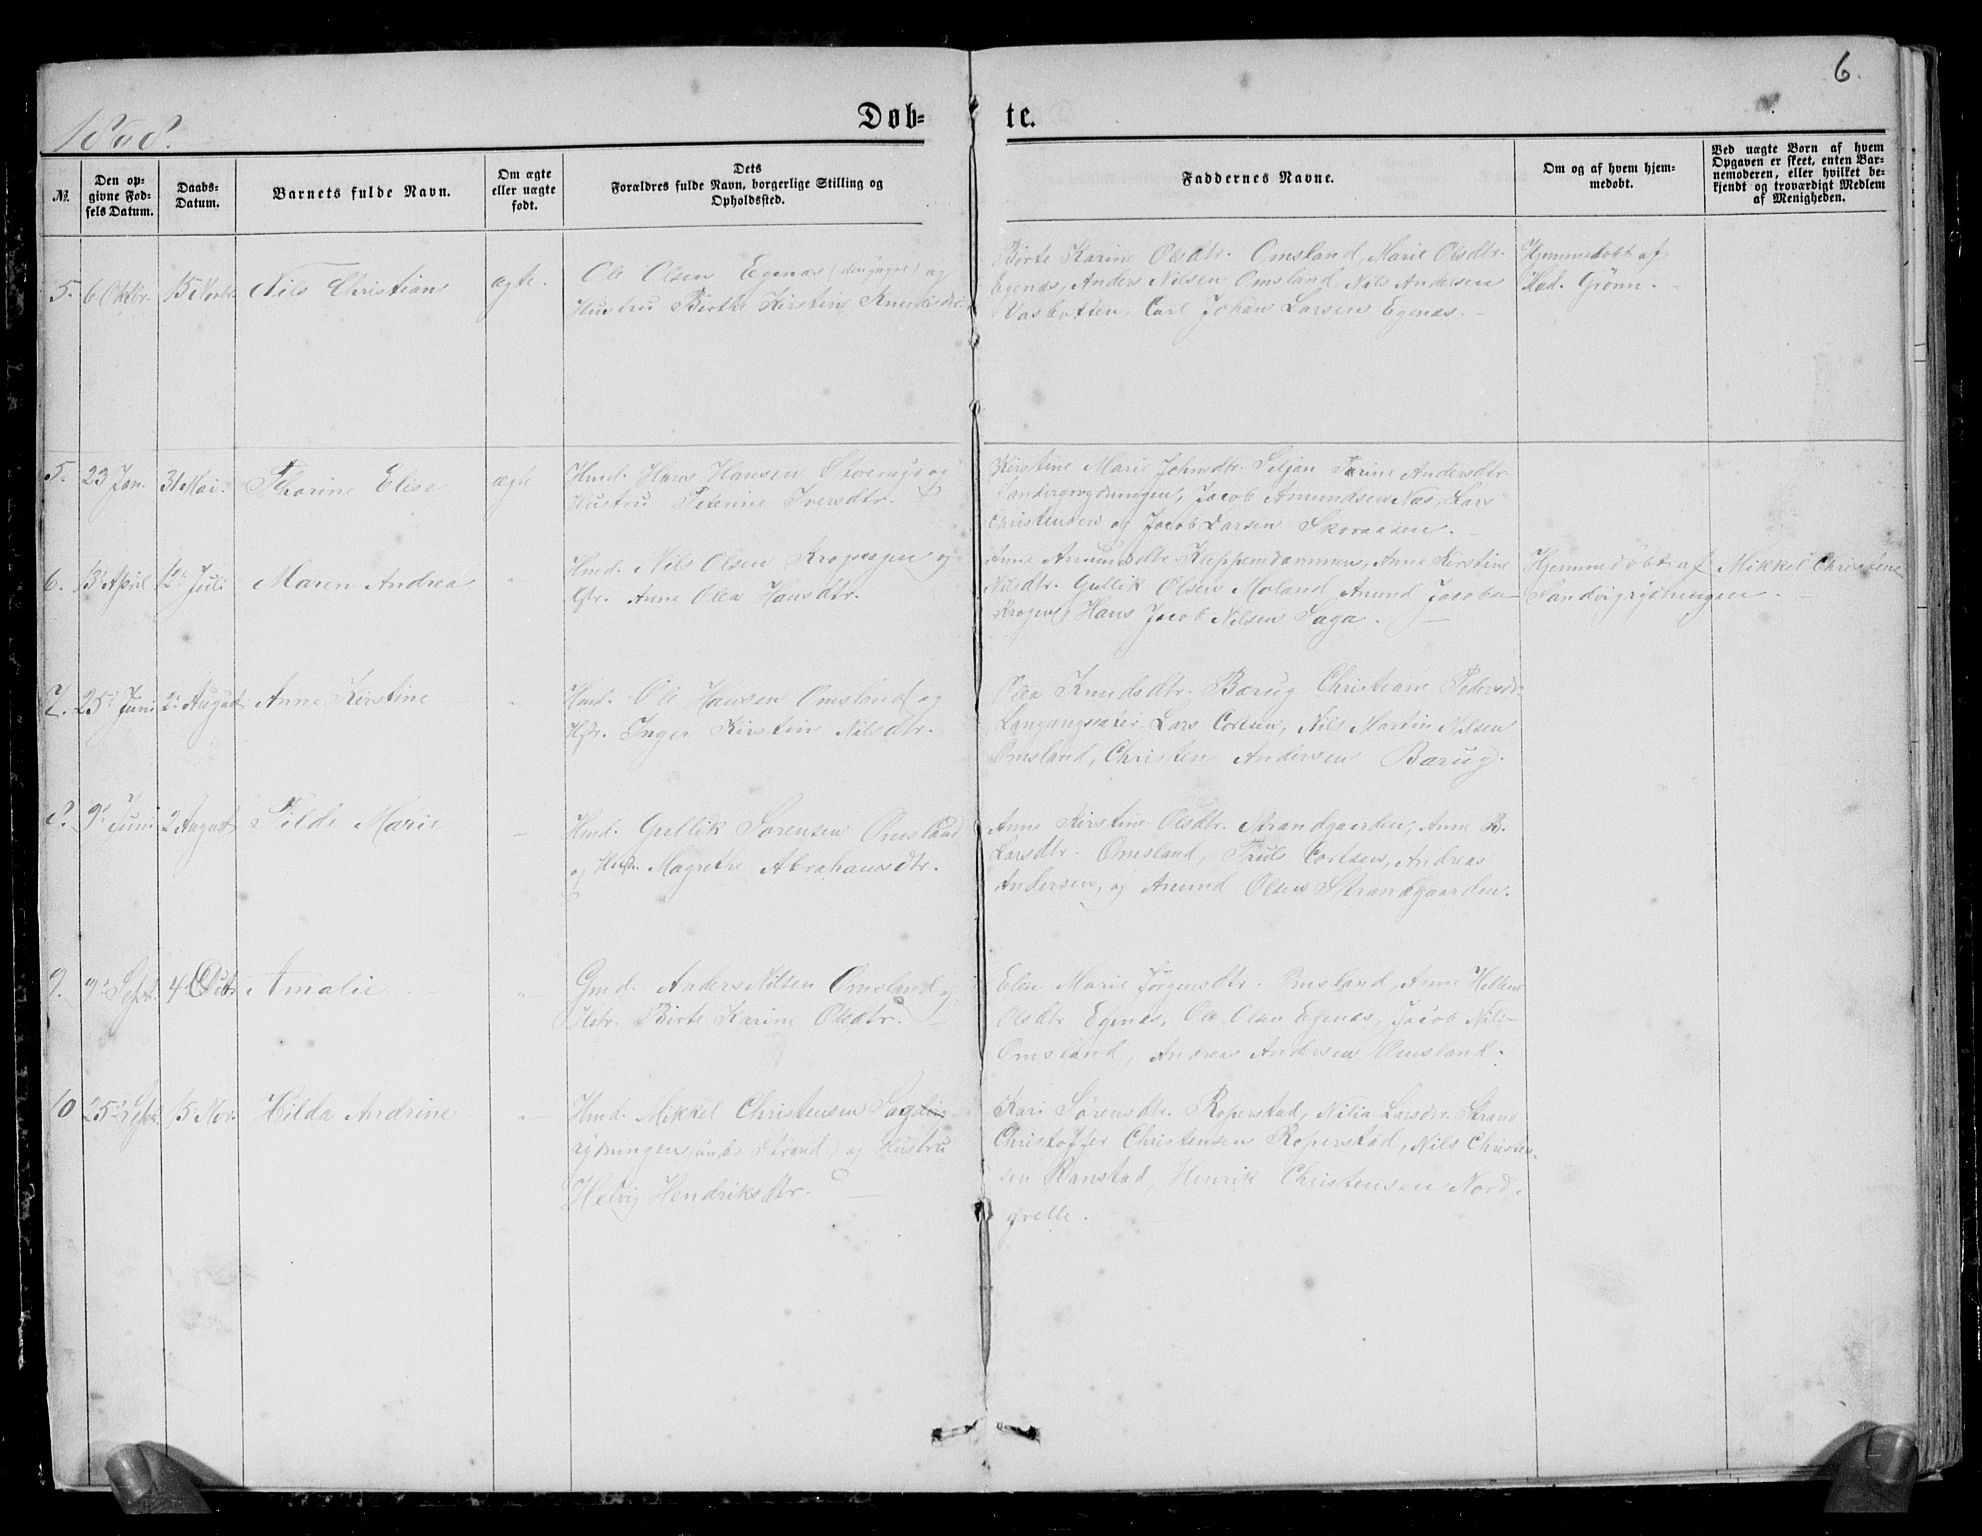 6.
1868.
Døb= te.
№.
Den op=
givne Fød=
sels Datum.
Daabs=
Datum.
Barnets fulde Navn.
Om ægte
eller uægte
født.
Dets
Forældres fulde Navn, borgerlige Stilling og
Opholdssted.
Faddernes Navne.
Om og af hvem hjem=
medøbt.
Ved uægte Børn af hvem
Opgaven er skeet, enten Bar=
nemoderen, eller hvilket be=
kjendt og troværdigt Medlem
af Menigheden.
5. 6 Oktbr. 15 Novbr. Nils Christian ægte.
Ole Olsen Egenæs (den yngre) og
Hustru Birthe Kirstine Knudsdtr.
Birte Karine Olsdtr. Omsland, Marie Olsdtr.
Egenæs, Anders Nilsen Omsland, Nils Andersen
Vasbotten, Carl Johan Larsen Egenæs.
Hjemmedøbt af
Mad. Grönn.
5. 23 Jan. 31 Mai. Thorine Elise ægte
Hmd. Hans Hansen og
Hustru Iversdtr.
Kirstine Marie Johnsdtr. Siljan Andersdtr.
Jacob Amundsen Næs, Lars
Christensen og Jacob Larsen Skoraasen.
6. 13 April 12 Juli Maren Andrea "
Hmd. Nils Olsen og
Hstr. Anne Olea Hansdtr.
Anne Amundsdtr. Anne Kirstine
Nilsdtr. Gullik Olsen Moland, Amund Jacobs
Hans Jacob Nilsen Saga.
Hjemmedøbt af Mikkel Christens
Sandvigrydningen.
7. 25 Juni 2 August Anne Kirstine "
Hmd. Ole Hansen Omsland og
Hstr. Inger Kirstine Nilsdtr.
Olea Knudsdtr. Bærug, Christiane Pedersdtr
Lars Cortsen, Nils Martin Nilsen
Omsland, Christen Andersen Bærug.
8. 9 Juni 2 August Tilde Marie "
Hmd. Gullik Sørensen Omsland
og Hustr. Magrethe Abrahamsdtr.
Anne Kirstine Olsdtr. Strandgaarden, Anne B.
Larsdtr. Omsland, Truls Cortsen, Andreas
Andersen, og Amund Olsen Strandgaarden.
9. Sept. 4 Octbr. Amalie "
Gmd. Anders Nilsen Omsland og
Hstr. Birte Karine Olsdtr.
Elen Marie Jørgensdtr. Omsland, Anne Hellene
Olsdtr Egenæs, Ole Olsen Egenæs, Jacob Nils-
Omsland, Andreas Andersen Omsland.
10 25 Sept. 15 Nov. Hilda Andrine "
Hmd. Mikkel Christensen
rydningen (under Strand) og Hustru
Helvig Hendriksdtr.
Kari Sørensdtr. Roperstad, Larsdtr. Strand
Christoffer Christensen Roperstad, Nils Christen-
sen Ranstad, Henrik Christensen Nord-
grelle.